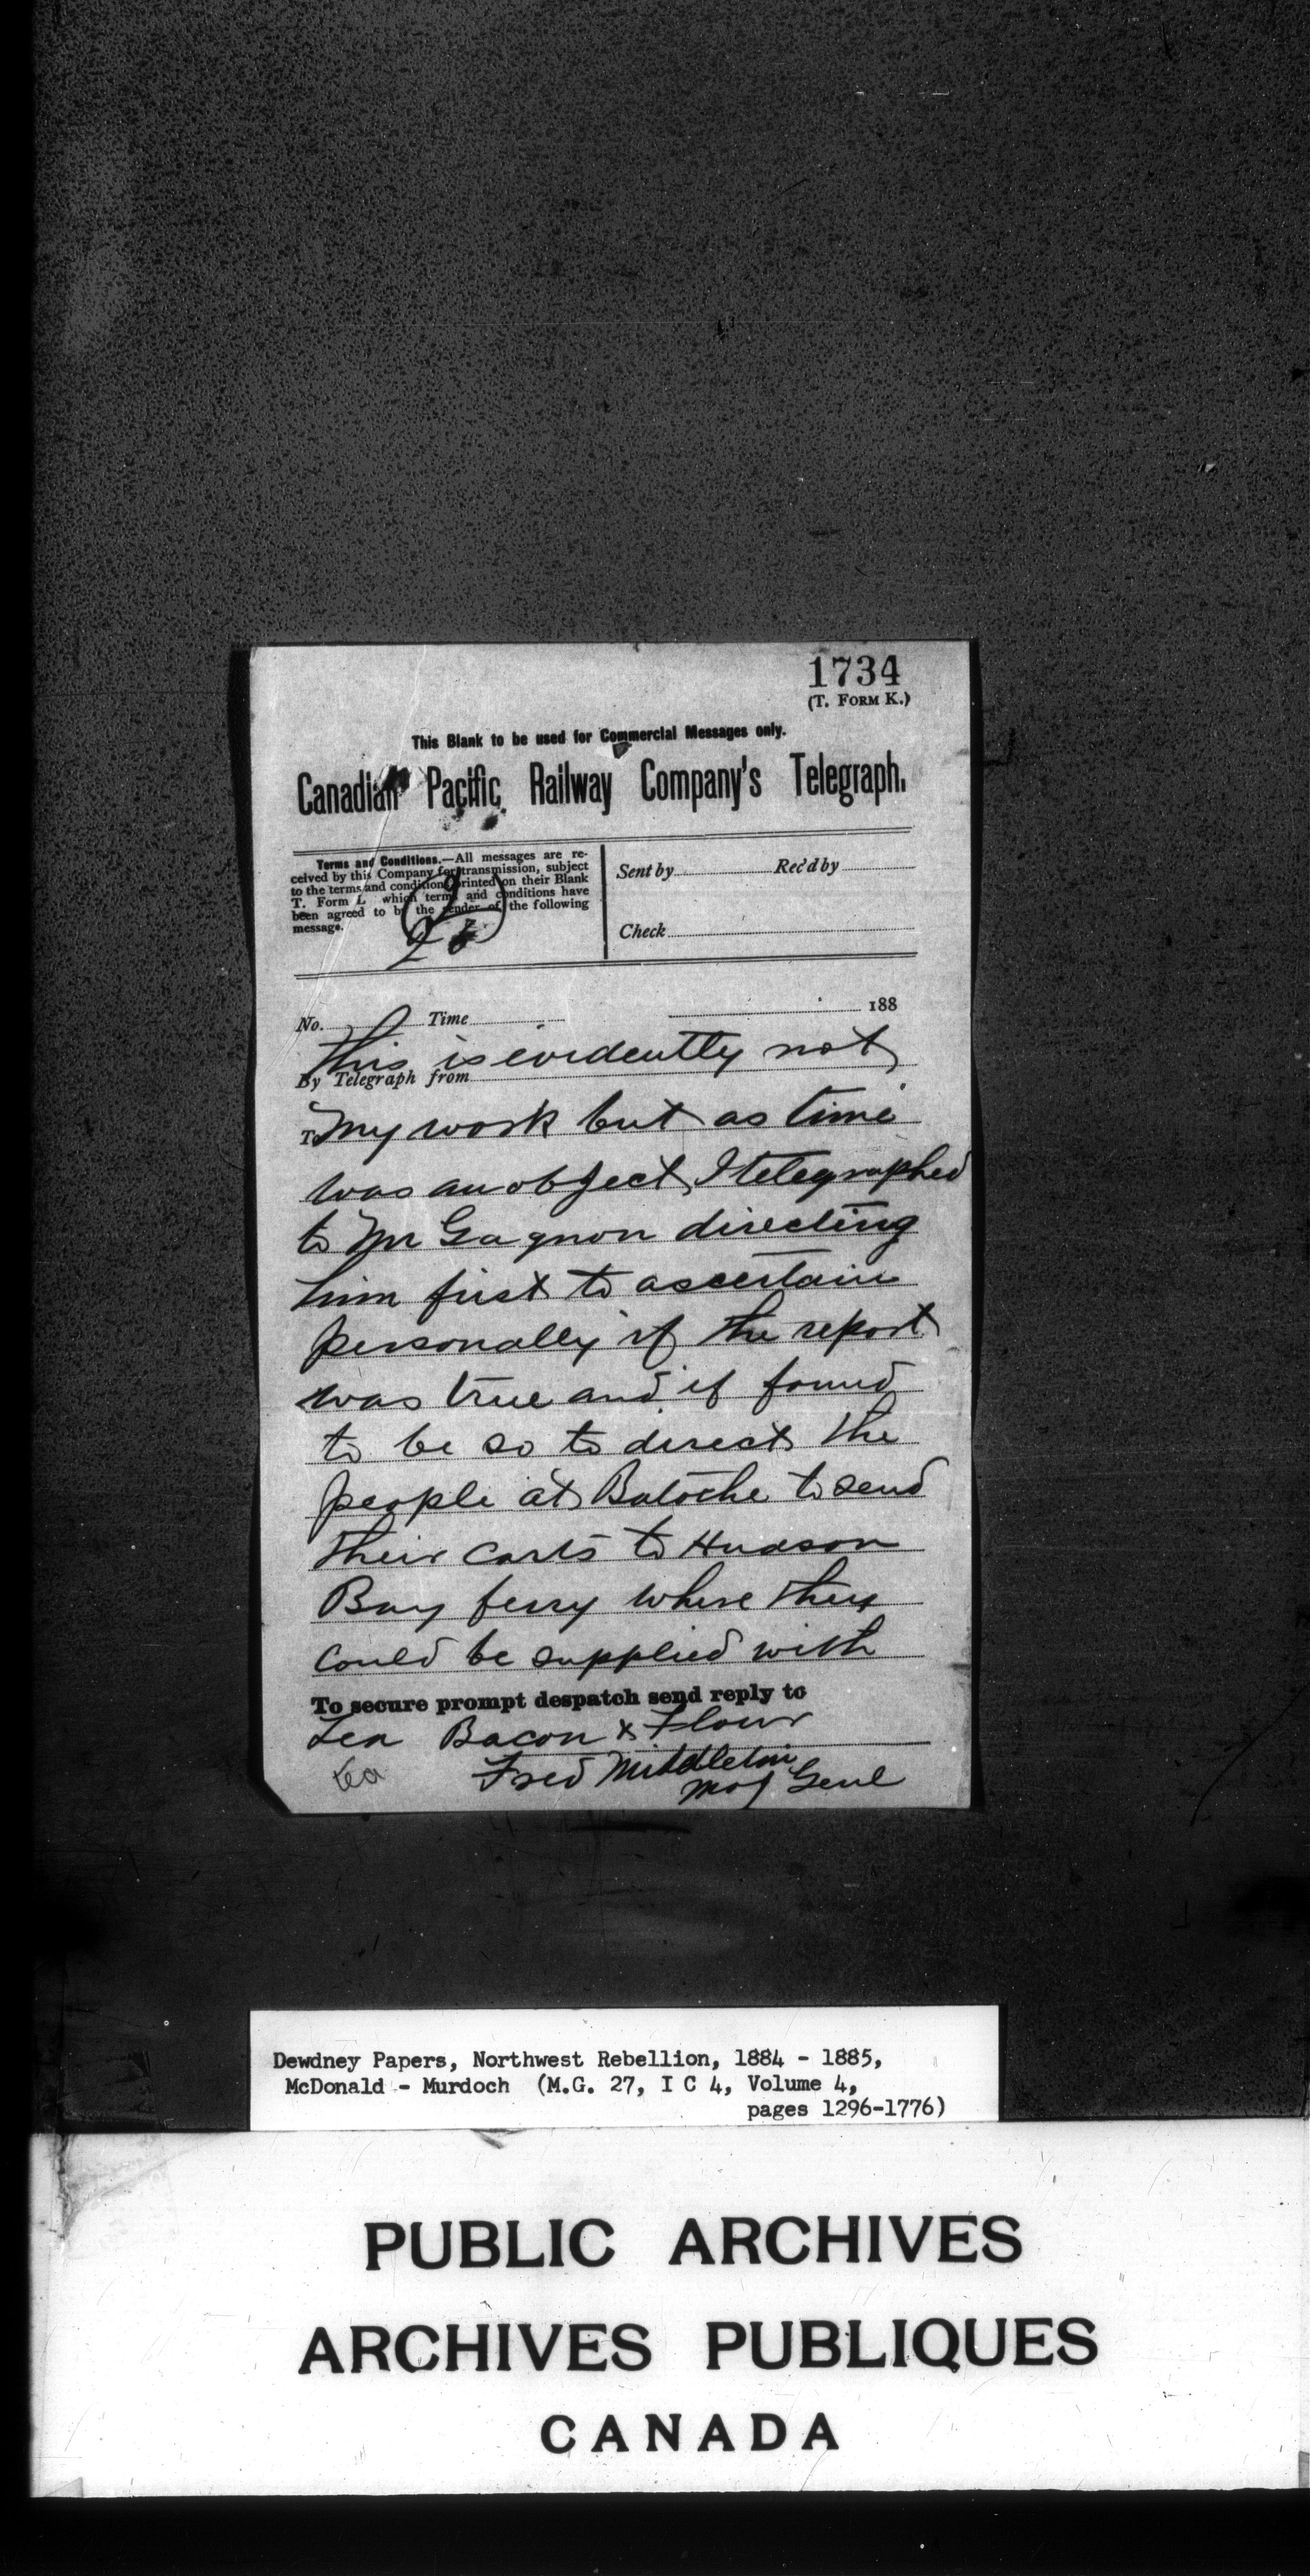 1734
(T. FORM K.)
This Blank to be used for Commercial Messages only.
Canadian Pacific Railway Company's Telegraph.
Terms and Conditions.—All messages are re-
ceived by this Company for transmission, subject
to the terms and conditions printed on their Blank
T. Form L which terms and conditions have
been agreed to by the sender of the following
message.
2
Sent by Rec'd by
Check
No. Time 188
This is evidently not
By Telegraph from
To my work but as time
was an object I telegraphed
to Mr Gagnon directing
him first to ascertain
personally if the report
was true and if found
to be so to direct the
people at Batoche to send
their carts to Hudson
Bay ferry where they
could be supplied with
To secure prompt despatch send reply to
Tea Bacon & Flour
tea Fred Middleton
Maj Genl
Dewdney Papers, Northwest Rebellion, 1884 - 1885,
McDonald - Murdoch (M.G. 27, I C 4, Volume 4,
pages 1296-1776)
PUBLIC ARCHIVES
ARCHIVES PUBLIQUES
CANADA